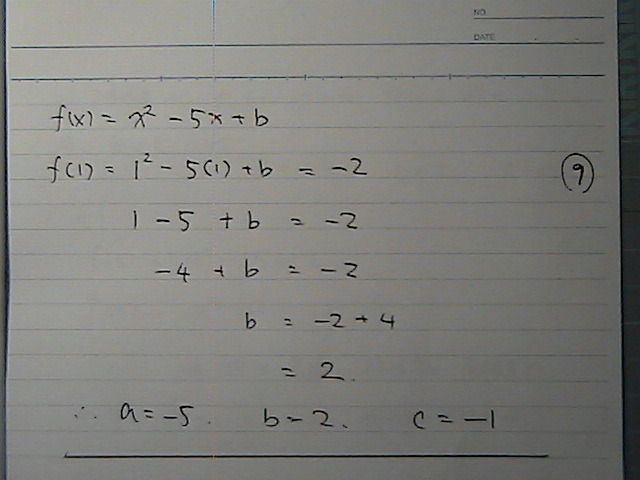 NO.
DATE
f(x) = x² - 5x + b
f(1) = 1² - 5(1) + b = -2
9
1 - 5 + b = -2
-4 + b = -2
b = -2 + 4
= 2.
∴ a = -5. b = 2. c = -1